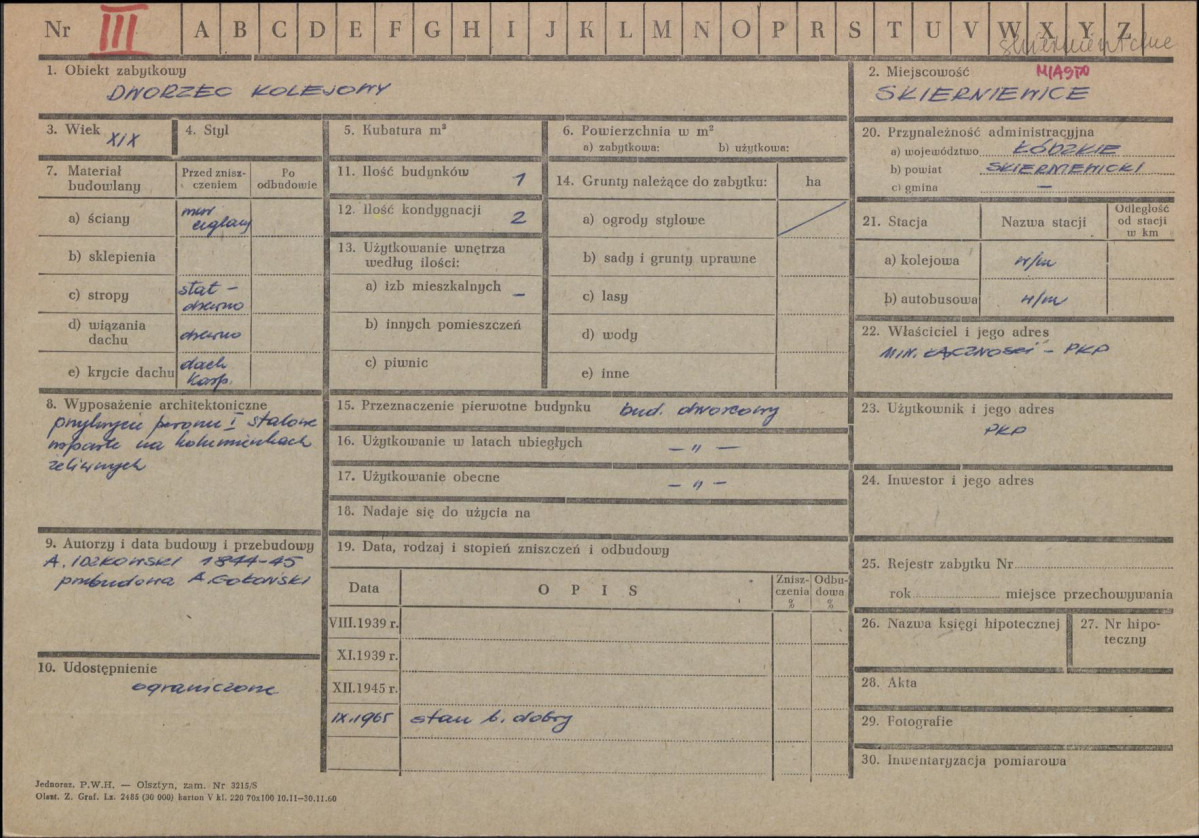 Nr III A B C D E F G H I J K L M N O P R S T U V W X Y Z
1. Obiekt zabytkowy
DWORZEC KOLEJOWY
2. Miejscowość MIASTO
SKIERNIEWICE
3. Wiek XIX
4. Styl
5. Kubatura m³
6. Powierzchnia w m²
a) zabytkowa: b) użytkowa:
7. Materiał budowlany
Przed znisz-
czeniem
Po
odbudowie
a) ściany mur ceglany
b) sklepienia
c) stropy stal – drewno
d) wiązania dachu drewno
e) krycie dachu dach karp.
8. Wyposażenie architektoniczne
peronu I stalowe
wsparte na kolumienkach
żeliwnych
9. Autorzy i data budowy i przebudowy
A. IDZKOWSKI 1844-45
przebudowa A.
10. Udostępnienie
ograniczone
11. Ilość budynków 1
12. Ilość kondygnacji 2
13. Użytkowanie wnętrza
według ilości:
a) izb mieszkalnych –
b) innych pomieszczeń
c) piwnic
14. Grunty należące do zabytku: ha
a) ogrody stylowe
b) sady i grunty uprawne
c) lasy
d) wody
e) inne
15. Przeznaczenie pierwotne budynku bud. dworcowy
16. Użytkowanie w latach ubiegłych – " –
17. Użytkowanie obecne – " –
18. Nadaje się do użycia na
19. Data, rodzaj i stopień zniszczeń i odbudowy
Data OPIS Znisz-
czenia
% Odbu-
dowa
%
VIII.1939 r.
XI.1939 r.
XII.1945 r.
IX.1965 stan b. dobry
20. Przynależność administracyjna
a) województwo ŁÓDZKIE
b) powiat SKIERNIEWICKI
c) gmina –
21. Stacja Nazwa stacji Odległość
od stacji
w km
a) kolejowa w/m
b) autobusowa w/m
22. Właściciel i jego adres
MIN. ŁĄCZNOŚCI – PKP
23. Użytkownik i jego adres
PKP
24. Inwestor i jego adres
25. Rejestr zabytku Nr
rok miejsce przechowywania
26. Nazwa księgi hipotecznej
27. Nr hipo-
teczny
28. Akta
29. Fotografie
30. Inwentaryzacja pomiarowa
Jednoraz. P.W.H. — Olsztyn, zam. Nr 3215/S
Olszt. Z. Graf. Lz. 2485 (30 000) karton V kl. 220 70x100 10.11—30.11.60